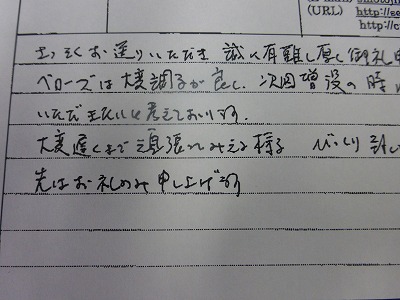 (URL) http://se
http://c
さっそくお送りいただき 誠に有難し厚く御礼申
ベローズは大変調子が良く、次回増設の時
いただきたいと考えております。
大変遅くまで頑張ってみえる様子 びっくり致し
先はお礼のみ申し上げます